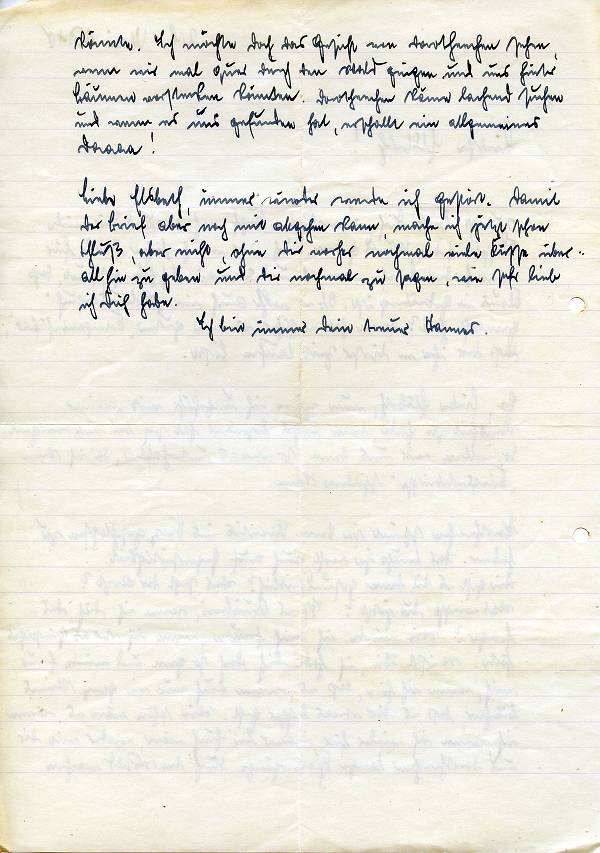 könnte. Ich möchte doch das Gesicht von Dorothechen sehen,
wenn wir mal quer durch den Wald gingen und uns hinter
Bäumen verstecken könnten. Dorothechen käme lachend suchen
und wenn es uns gefunden hat, erschallt ein allgemeines
Daaaa!
Liebe Elsbeth, immer wieder werde ich gestört. Damit
der Brief aber noch mit abgehen kann, mache ich jetzt schon
Schluß, aber nicht, ohne dir vorher nochmal viele Küsse über-
all hin zu geben und dir nochmal zu sagen, wie sehr lieb
ich Dich habe.
Ich bin immer dein treuer Hannes.